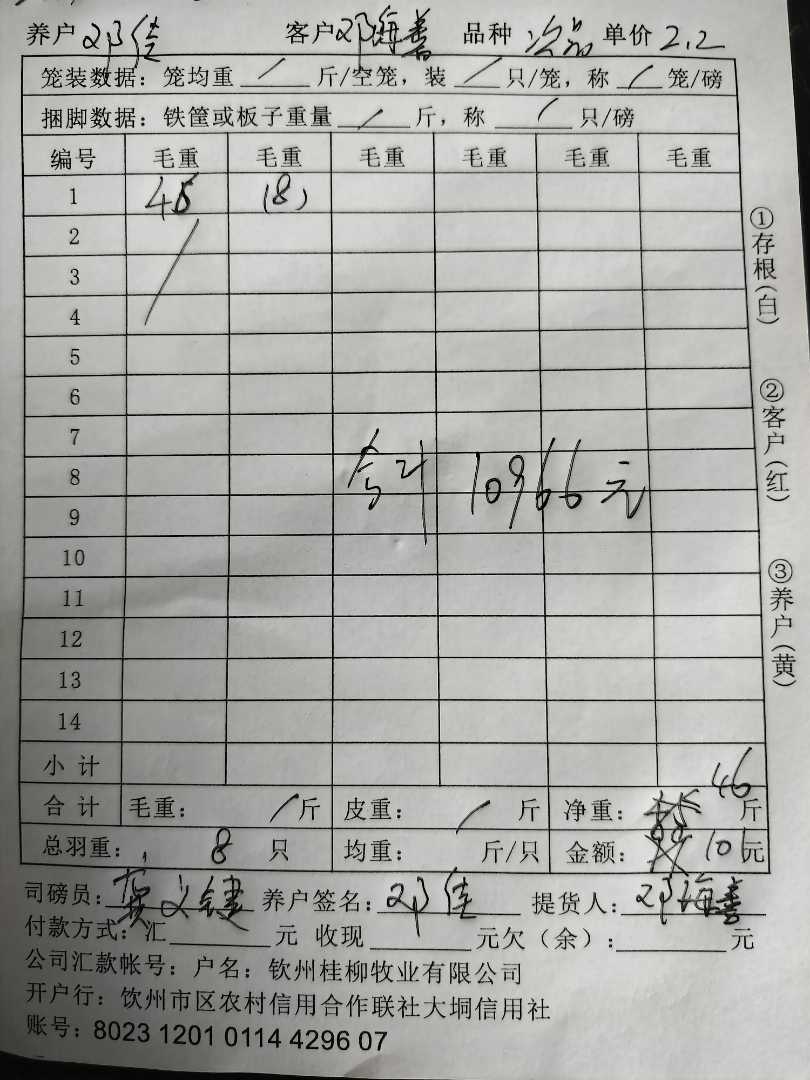 养户 邓佳 客户 邓海善 品种 次品 单价 2.2
笼装数据：笼均重 / 斤/空笼，装 / 只/笼，称 / 笼/磅
捆脚数据：铁筐或板子重量 / 斤，称 / 只/磅
编号 毛重 毛重 毛重 毛重 毛重 毛重
1 (8)
2
3
4
5
6
7
8 合计 10966元
9
10
11
12
13
14
小计
合计 毛重： / 斤 皮重： / 斤 净重： 46 斤
总羽重： 8 只 均重： 斤/只 金额： 101 元
司磅员： 贾义键 养户签名：邓佳 提货人：邓海善
付款方式：汇 元 收现 元欠（余）： 元
公司汇款帐号：户名：钦州桂柳牧业有限公司
开户行：钦州市区农村信用合作联社大垌信用社
账号：8023 1201 0114 4296 07
①存根(白)
②客户(红)
③养户(黄)